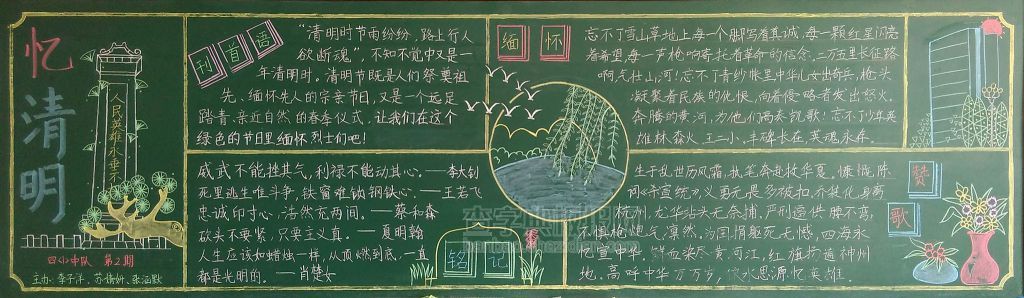 忆清明
人民英雄永垂不
四(2)中队 第2期
主办:李子洋、苏倩妍、张涵默
刊首语
“清明时节雨纷纷，路上行人
欲断魂”，不知不觉中又是一
年清明时。清明节既是人们祭奠祖
先、缅怀先人的宗亲节日，又是一个远足
踏青、亲近自然的春季仪式，让我们在这个
绿色的节日里缅怀烈士们吧！
威武不能挫其气，利禄不能动其心。——李大钊
死里逃生唯斗争，铁窗难锁钢铁心。——王若飞
忠诚印寸心，浩然充两间。——蔡和森
砍头不要紧，只要主义真。——夏明翰
人生应该如蜡烛一样，从顶燃到底，一直
都是光明的。——肖楚女
铭记
缅怀
忘不了雪山草地上每一个脚写着真诚，每一颗红星闪亮
着希望，每一声枪响寄托着革命的信念，二万五里长征路
啊，气壮山河！忘不了青纱帐里中华儿女出奇兵，枪头
凝聚着民族的仇恨，向着侵略者发出怒火。
奔腾的黄河，为他们两奏凯歌！忘不了少年英
雄林森火、王二小，丰碑长在，英魂永存
赞歌
生于乱世历风霜，执笔奔赴牧华夏，慷慨陈
词 宣统，义勇元 多破扣，乔装化身
杭州，龙华站头无奈捕，严刑逼供腰不弯，
不惧枪炮气凛然，治国捐躯死无憾，四海永
忆宣中华，鲜血染尽黄河江，红旗扬遍神州
地，高呼中华万万岁，饮水思源忆英雄。